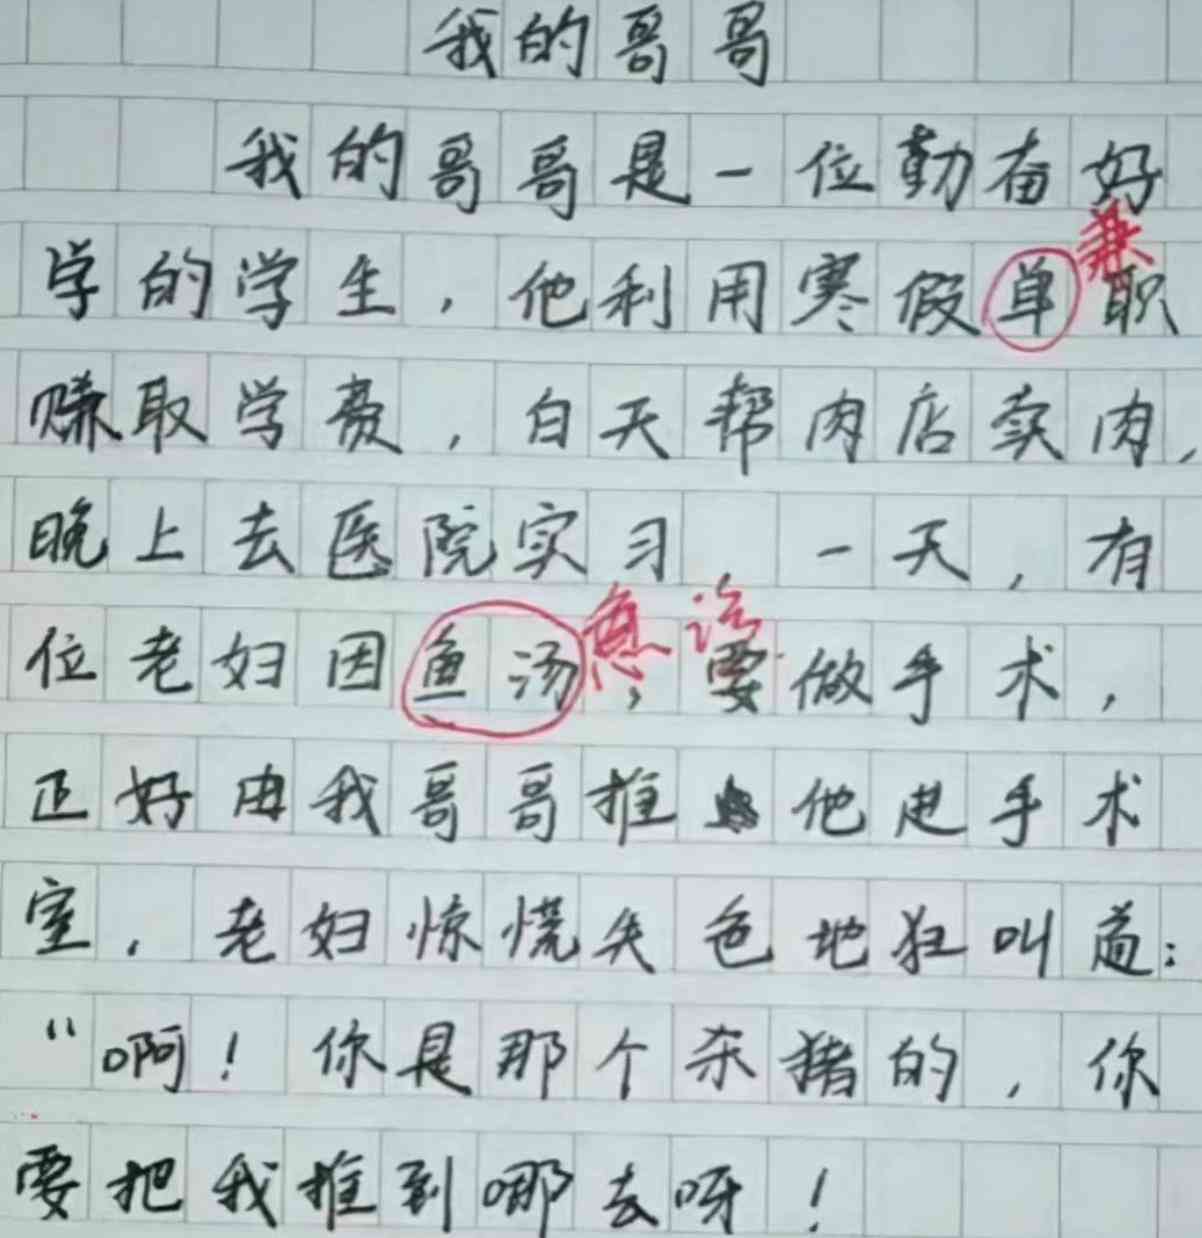 我的哥哥
我的哥哥是一位勤奋好
学的学生，他利用寒假单职
兼
赚取学费，白天帮肉店卖肉，
晚上去医院实习，一天，有
位老妇因鱼汤，要做手术，
急诊
正好由我哥哥推她进手术
室，老妇惊慌失色地狂叫道：
“啊！你是那个杀猪的，你
要把我推到哪去呀！